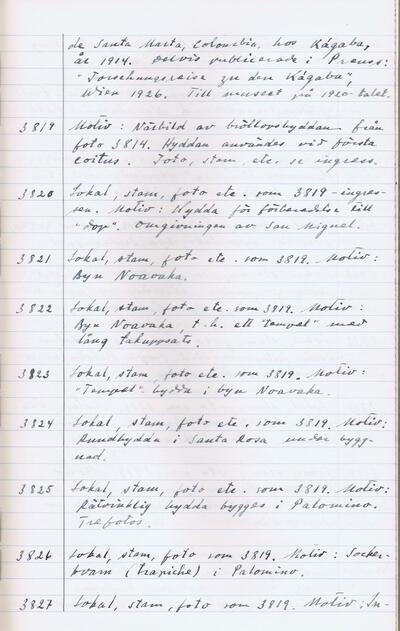 de Santa Marta, Colombia, hos Kágaba,
år 1914. Delvis publicerade i Preuss:
"Forschungsreise zu den Kágaba",
Wien 1926. Till museet på 1920-talet.
3819 Motiv: Närbild av bröllopshyddan från
foto 3814. Hyddan användes vid första
coitus. Foto, stam, etc. se ingress.
3820 Lokal, stam, foto etc. som 3819-ingres-
sen. Motiv: Hydda för förberedelse till
"dop". Omgivningen av San Miguel.
3821 Lokal, stam, foto etc. som 3819. Motiv:
Byn Noavaka.
3822 Lokal, stam, foto etc. som 3819. Motiv:
Byn Noavaka, t.h. ett "tempel" med
lång takuppsats.
3823 Lokal, stam, foto etc. som 3819. Motiv:
"Tempel"hydda i byn Noavaka.
3824 Lokal, stam, foto etc. som 3819. Motiv:
Rundhydda i Santa Rosa under bygg-
nad.
3825 Lokal, stam, foto etc. som 3819. Motiv:
Rätvinklig hydda bygges i Palomino.
Tre fotos.
3826 Lokal, stam, foto som 3819. Motiv: Socker-
kvarn (trapiche) i Palomino.
3827 Lokal, stam, foto som 3819. Motiv: In-